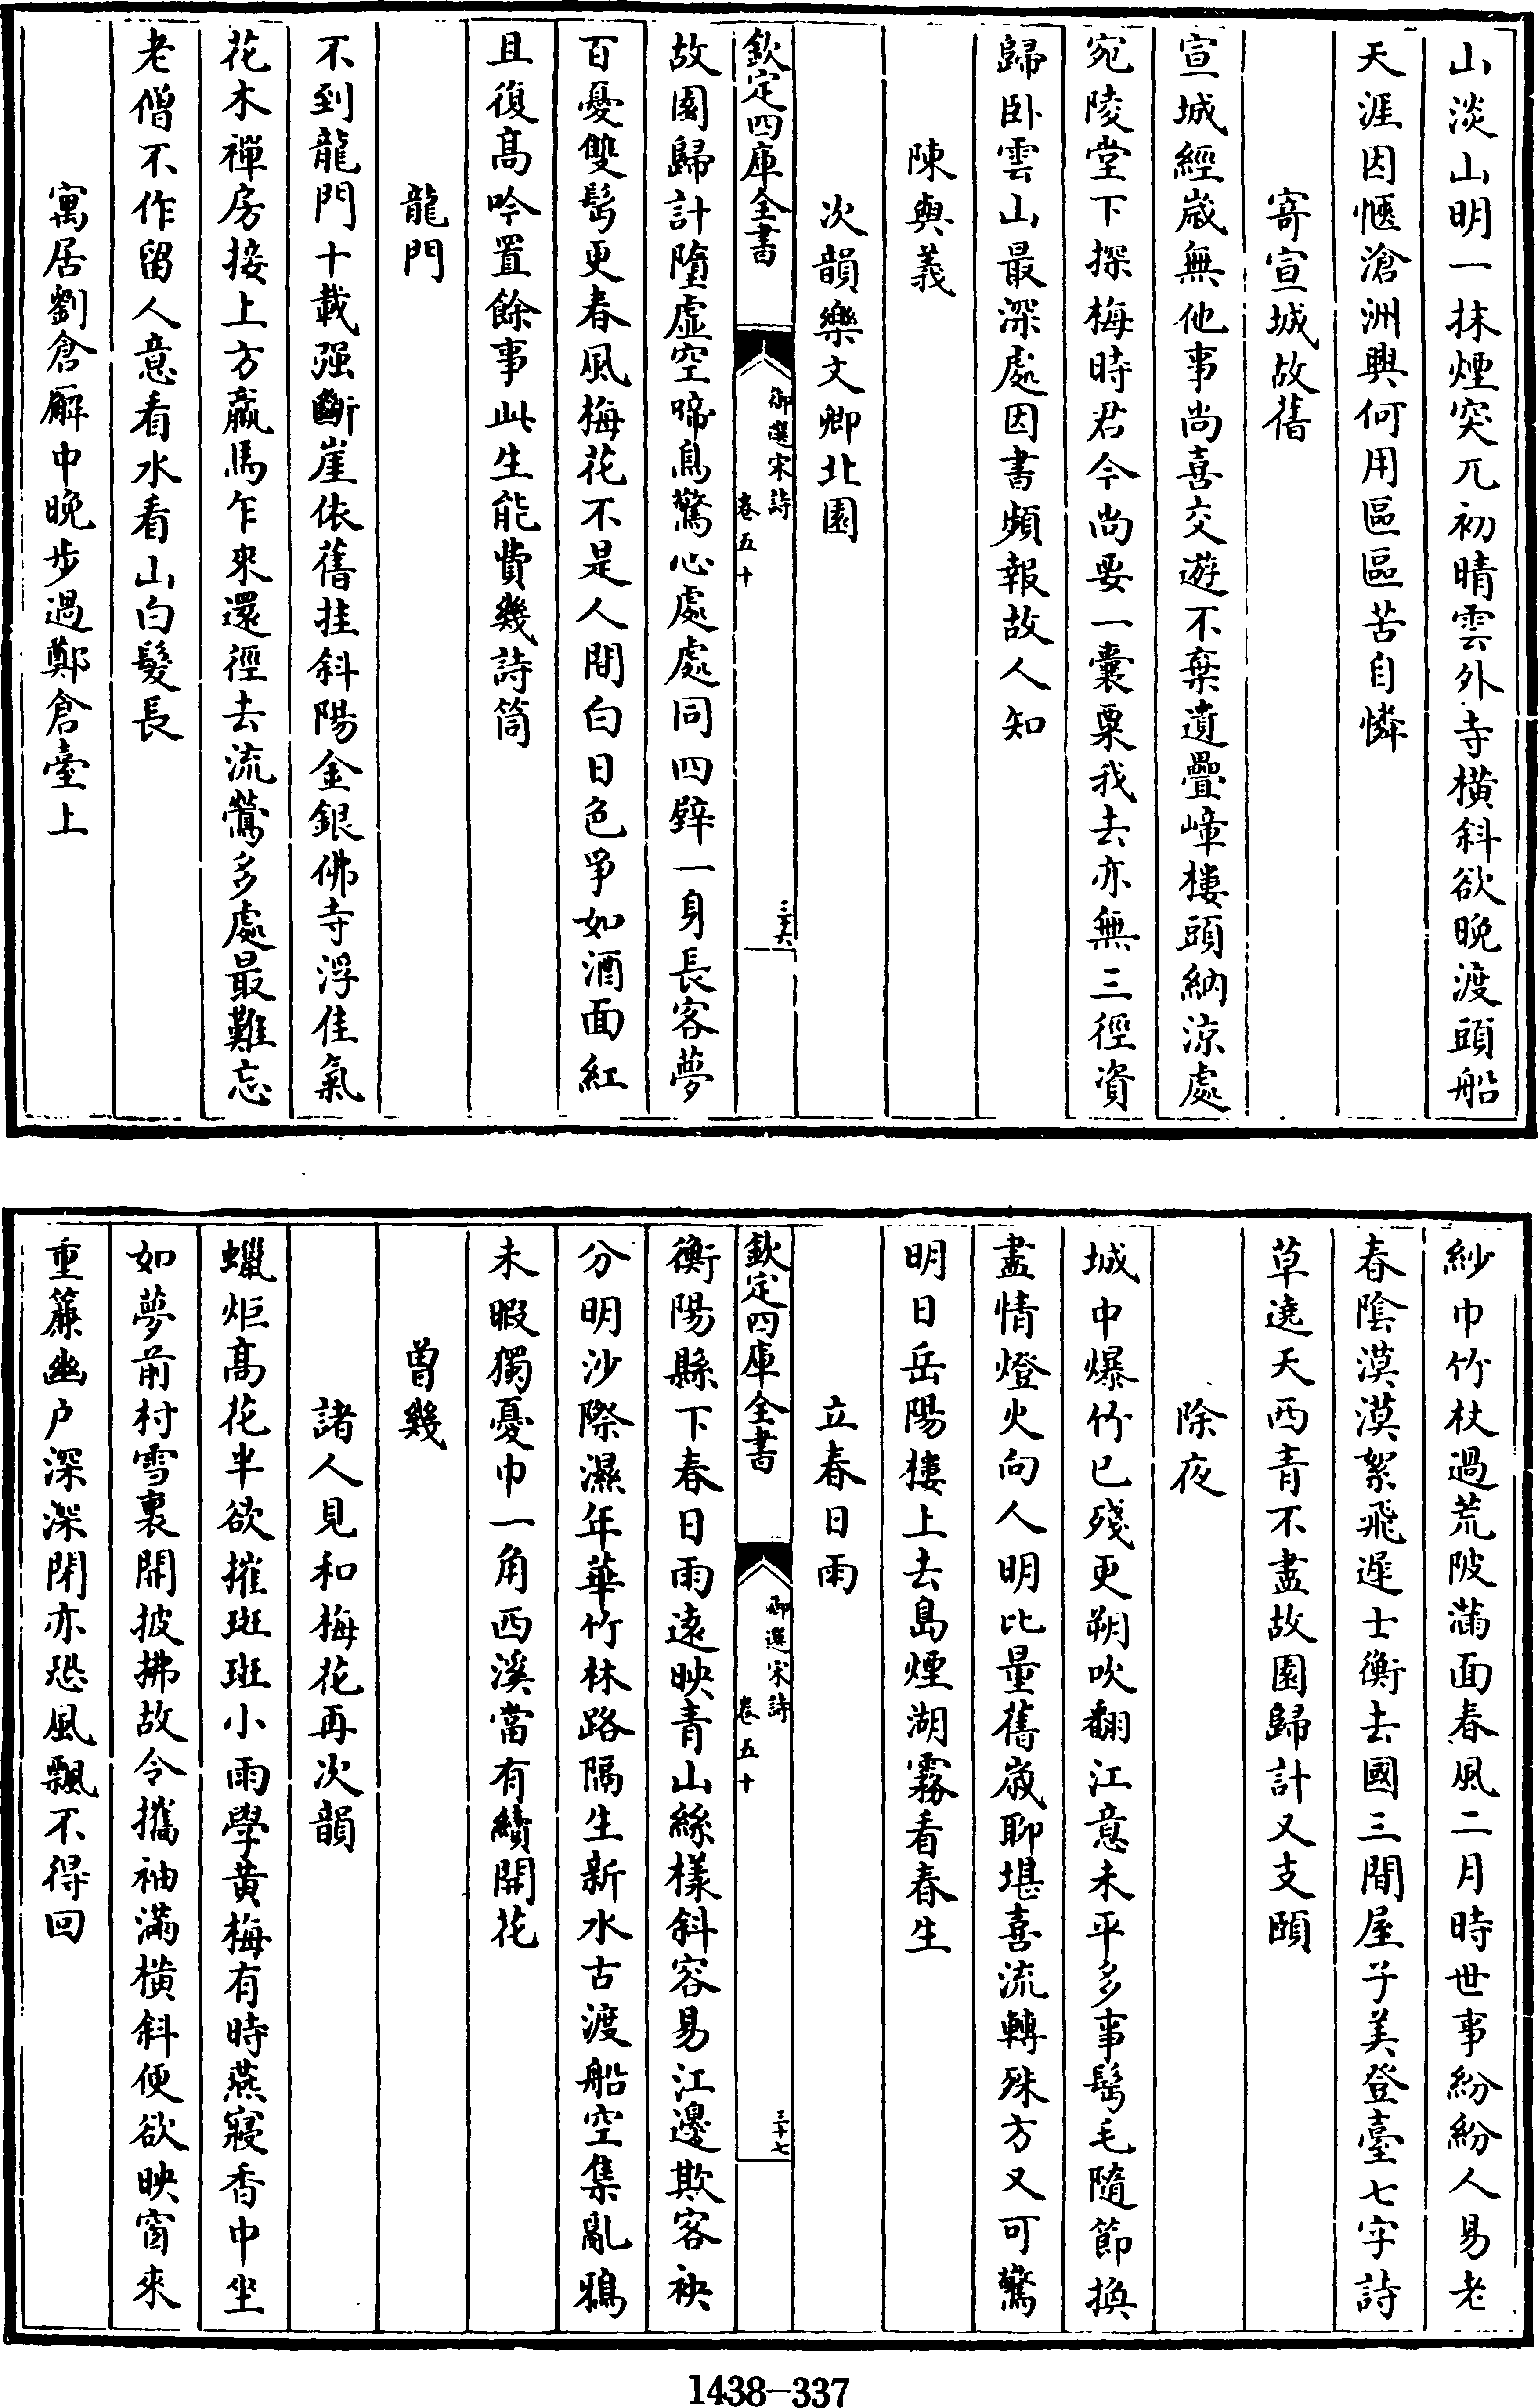 山淡山明一抹煙突兀初晴雲外寺橫斜欲晚渡頭船
天涯因愜滄洲興何用區區苦自憐
寄宣城故舊
宣城經歲無他事尚喜交遊不棄遺疊嶂樓頭納涼處
宛陵堂下探梅時君今尚要一囊粟我去亦無三徑資
歸卧雲山最深處因書頻報故人知
陳與義
次韻樂文卿北園
欽定四庫全書
御選宋詩
卷五十
三十六
故園歸計墮虛空啼鳥驚心處處同四壁一身長客夢
百憂雙鬢更春風梅花不是人間白日色爭如酒面紅
且復高吟置餘事此生能費幾詩筒
龍門
不到龍門十載强斷崖依舊挂斜陽金銀佛寺浮佳氣
花木禪房接上方羸馬乍來還徑去流鶯多處最難忘
老僧不作留人意看水看山白髮長
寓居劉倉廨中晚步過鄭倉臺上
紗巾竹杖過荒陂滿面春風二月時世事紛紛人易老
春陰漠漠絮飛遲士衡去國三間屋子美登臺七字詩
草遶天西青不盡故園歸計又支頤
除夜
城中爆竹已殘更朔吹翻江意未平多事鬢毛隨節換
盡情燈火向人明比量舊歲聊堪喜流轉殊方又可驚
明日岳陽樓上去島煙湖霧看春生
立春日雨
欽定四庫全書
御選宋詩
卷五十
三十七
衡陽縣下春日雨遠映青山絲樣斜容易江邊欺客袂
分明沙際濕年華竹林路隔生新水古渡船空集亂鴉
未暇獨憂巾一角西溪當有續開花
曾幾
諸人見和梅花再次韻
蠟炬高花半欲摧斑斑小雨學黃梅有時燕寢香中坐
如夢前村雪裏開披拂故令攜袖滿橫斜便欲映窗來
重簾幽户深深閉亦恐風飄不得回
1438-337